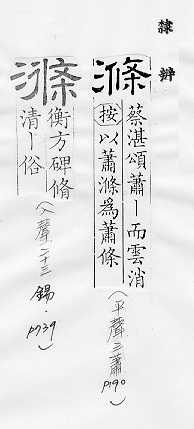 隸辨
滌
蔡湛頌蕭丨而雲消
按以蕭滌為蕭條
(平聲三蕭 P190)
滌
衡方碑脩
清丨俗
(入聲二十三錫.P739)